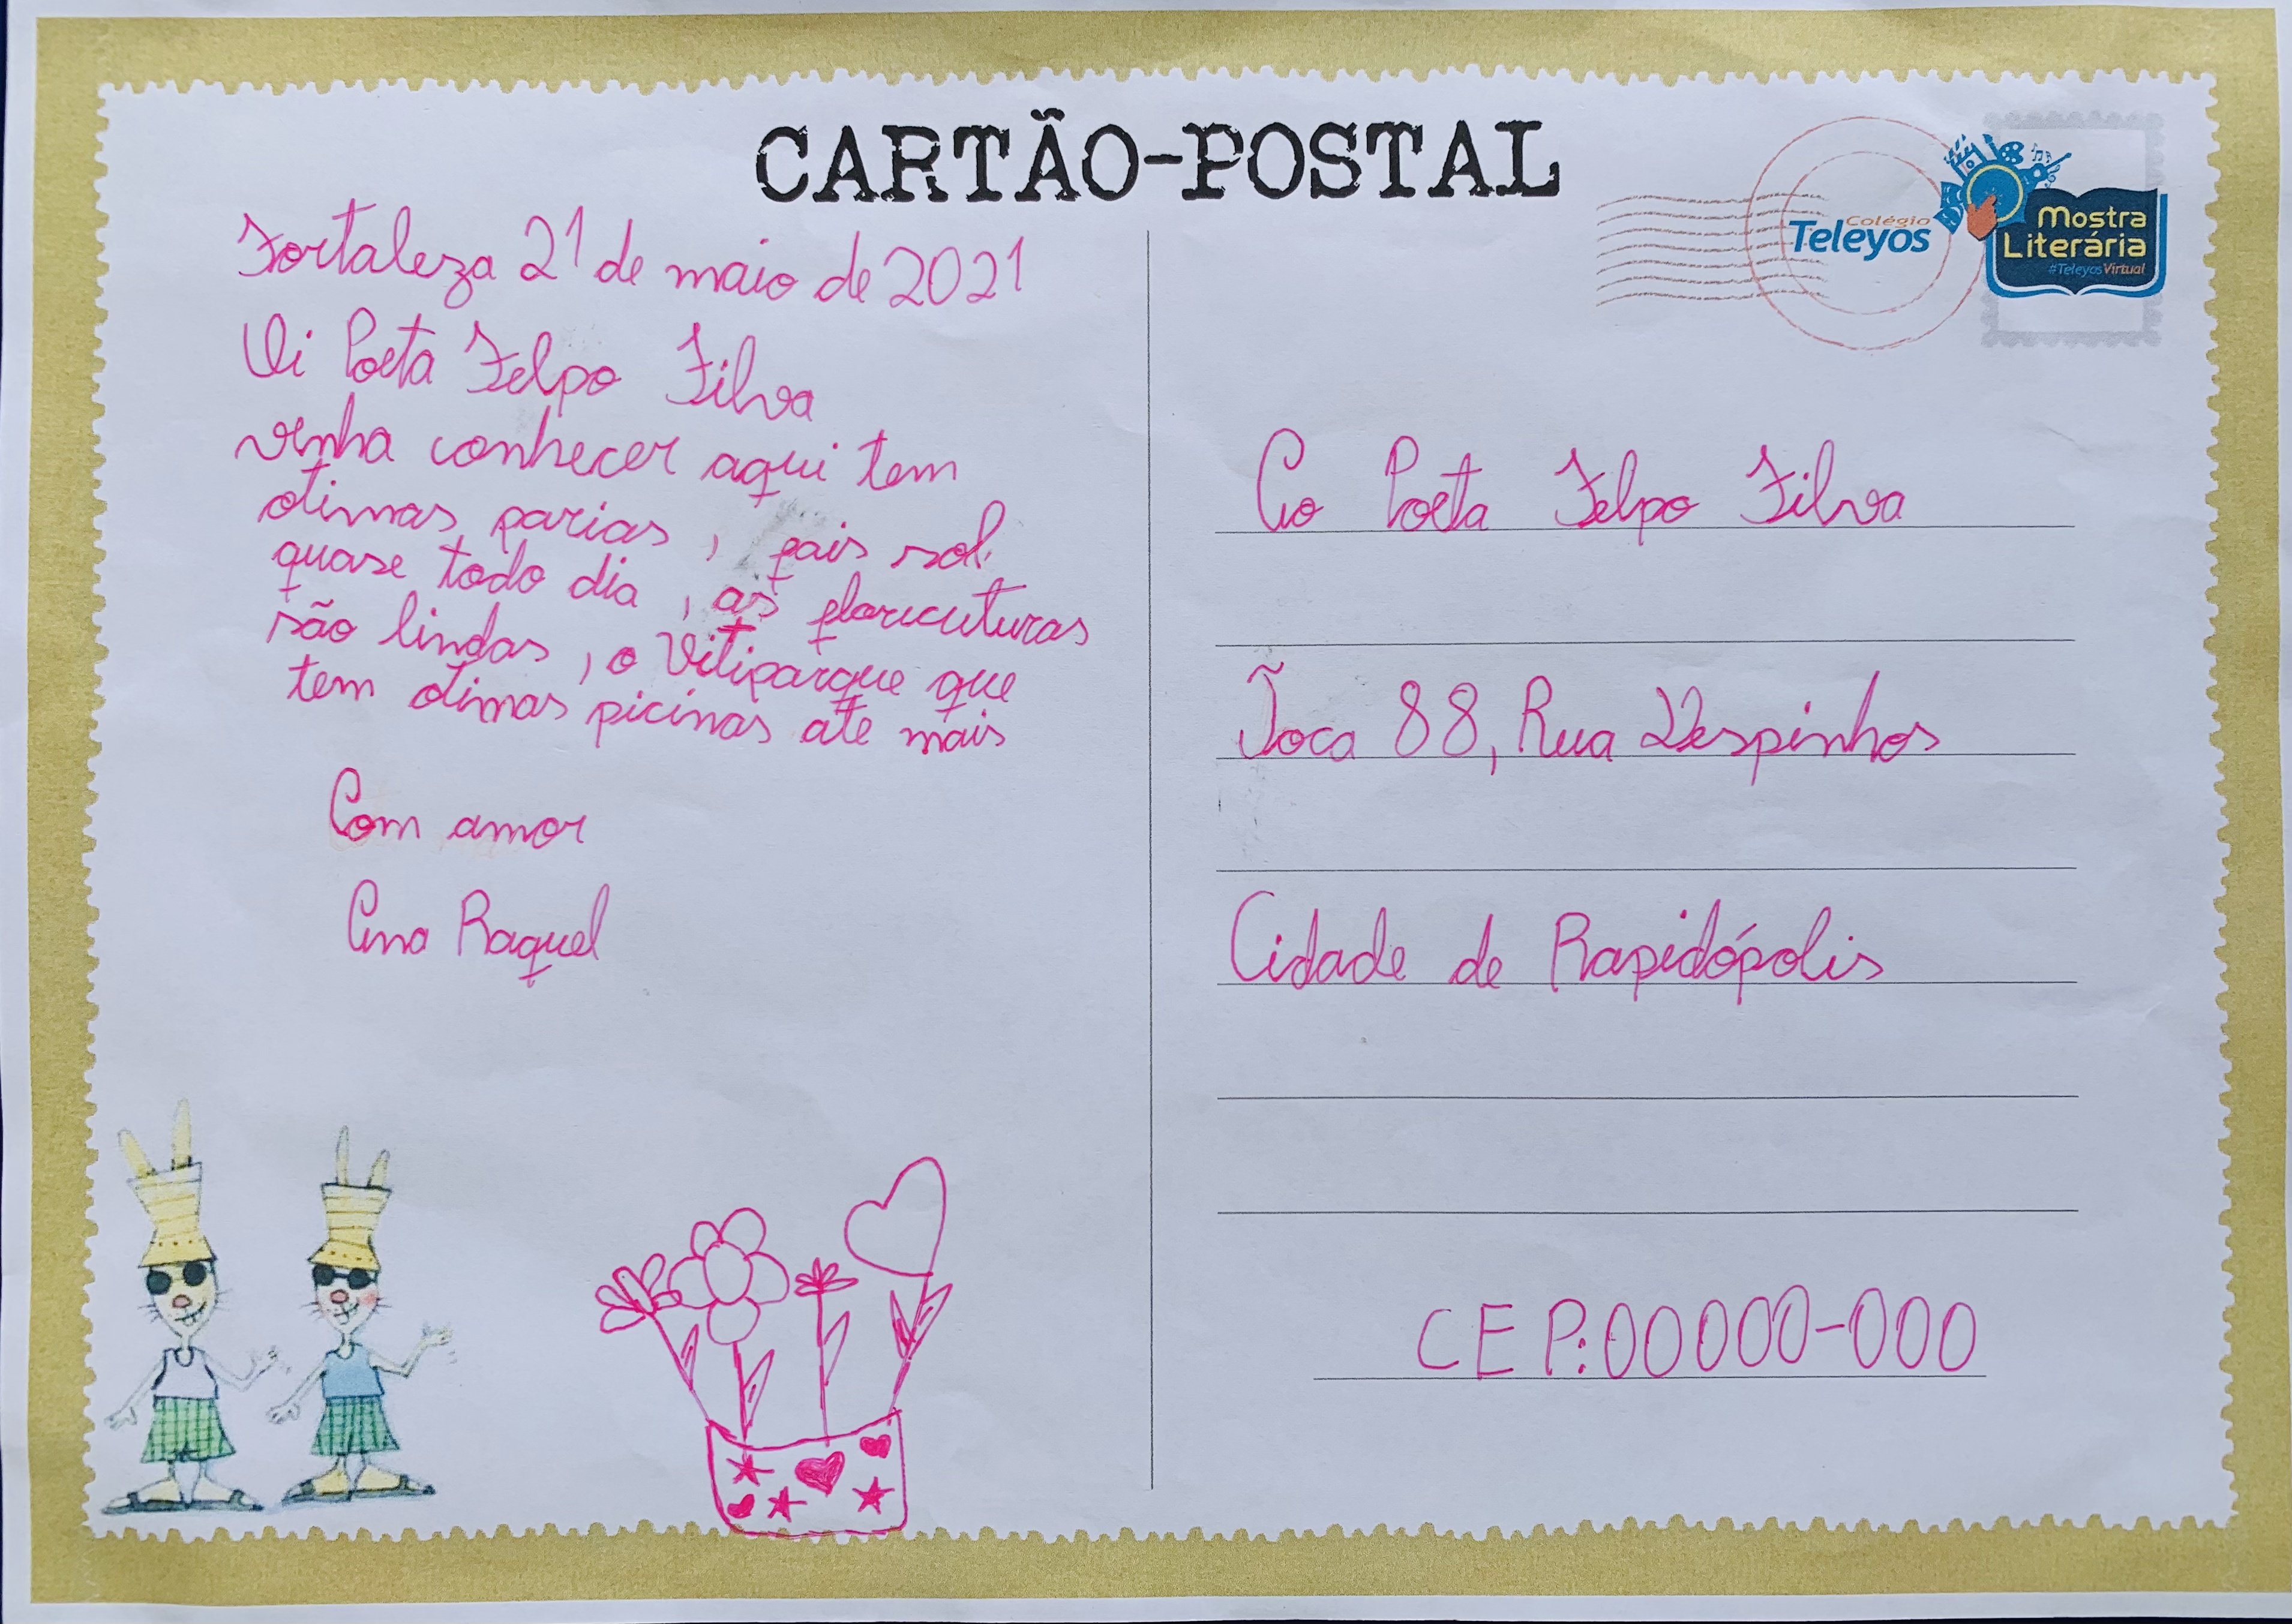 CARTÃO-POSTAL
Colégio
Teleyos
Mostra
Literária
#TeleyosVirtual
Fortaleza 21 de maio de 2021
Oi Poeta Felpo Filva
venha conhecer aqui tem
otimas parias, pais sol
quase todo dia, as floricuturas
são lindas, o Vitiparque que
tem otimas picinas ate mais
Com amor
Ana Raquel
Ao Poeta Felpo Filva
Toca 88, Rua Despinhos
Cidade de Rapidópolis
CEP:00000-000